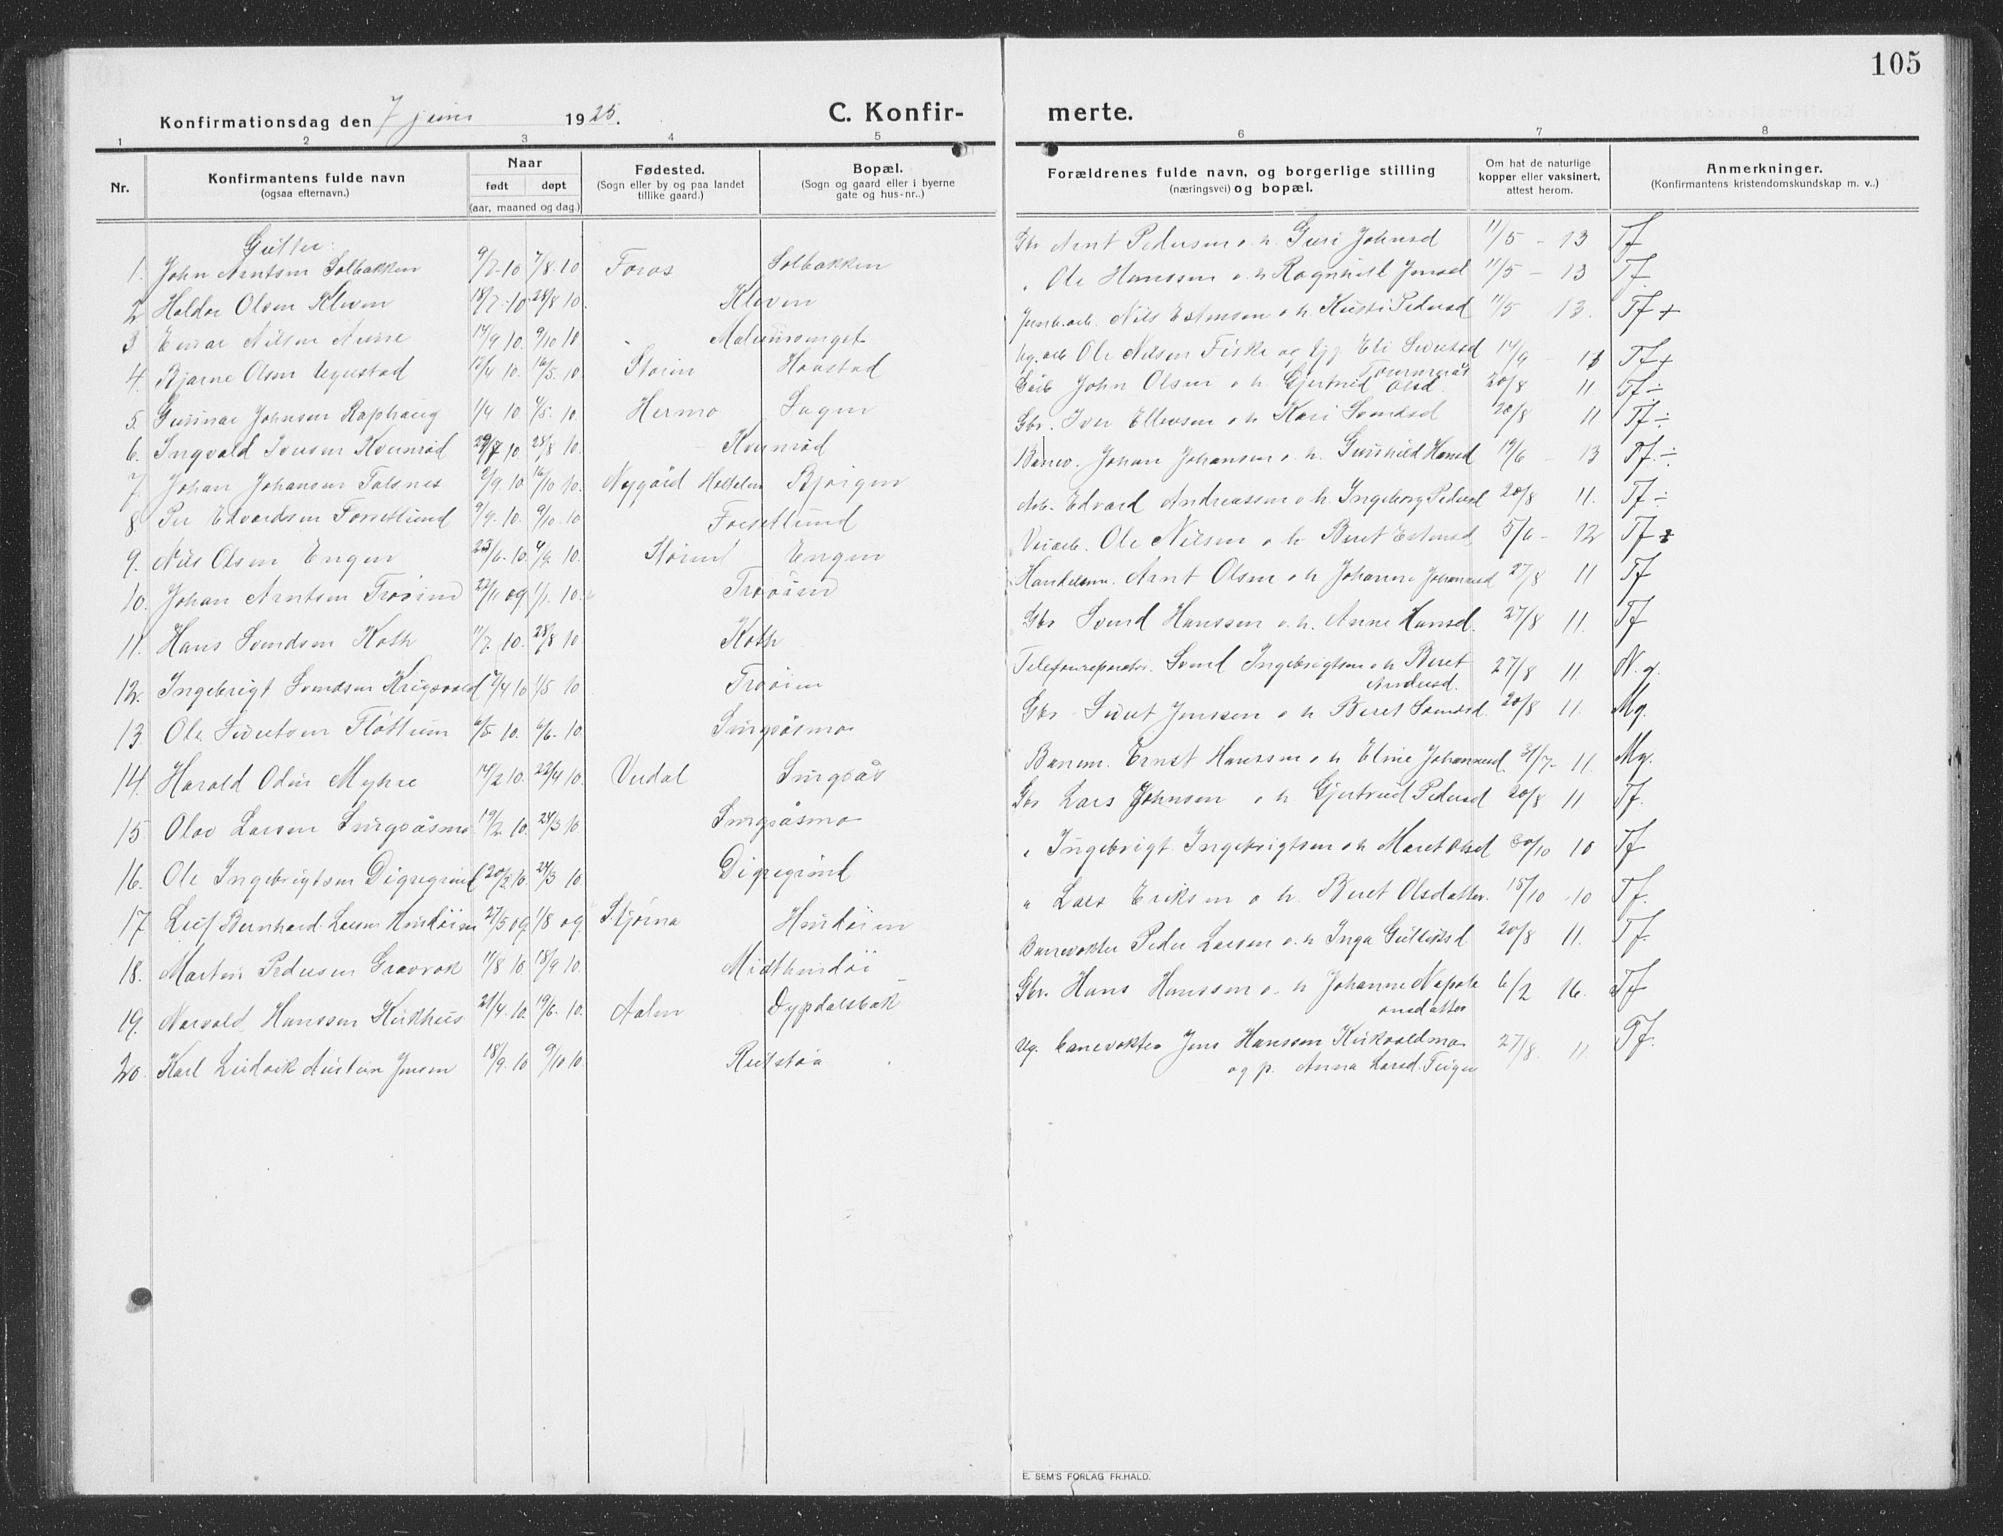 105
Konfirmationsdag den 7 juni 1925. C. Konfir- merte.
1 2 3 4 5 6 7 8
Nr. Konfirmantens fulde navn (ogsaa efternavn.) Naar født døpt (aar, maaned og dag.) Fødested. (Sogn eller by og paa landet tillike gaard.) Bopæl. (Sogn og gaard eller i byerne gate og hus-nr..) Forældrenes fulde navn, og borgerlige stilling (næringsvei) og bopæl. Om hat de naturlige kopper eller vaksinert, attest herom. Anmerkninger. (Konfirmantens kristendomskundskap m. v..)
Gutter:
1. John Arntsen Solbakken 9/7-10 7/8-10 Foros Solbakken Gbr Arnt Pedersen o. h. Guri Johnsd 11/5 - 13 Tf
2. Haldor Olsen Kleven 18/7-10 28/8 10. Kleven " Ole Hanssen o. h Ragnhild Jensd 11/5 - 13 Tf.
3 Einar Nilsen Aune 14/9 10. 9/10 10 Nils Estensen o h Kirsti Pedersd 11/5 13. Tf +
4. Bjarne Olsen 12/4 10. 16/5. 10. Støren Havstad Ole Nilsen Fiske og Eli Sivertsd 14/9 - 11 Tf +
5. Gunnar Johnsen Raphaug 1/4 10 4/5. 10 Hermo Sagen John Olsen o. h. Gjertrud Olsd. 20/8 11 Tf ÷
6. Ingvald Iversen Kvernrød 29/7 10 28/8 10. Kvernrød Gbr. Iver Ellevsen o h Kari Svendsd 20/8 11 Tf ÷
7. Johan Johansen Talsnes 2/9 10. 16/10 10. Nygård Holtålen Bjørgen Banev. Johan Johansen o. h. Gunhild Hansd 19/6 - 13 Tf. ÷
8. Per Edvardsen Forsetlund 9/9. 10. 9/10. 10 Forsetlund Arb. Edvard Andreassen o h Ingeborg Pedersd 20/8 11. Tf ÷
9. Nils Olsen Engen 23/6. 10. 4/9. 10. Støren Engen Veiarb. Ole Nilsen o h Beret Estensd 5/6 - 12 Tf
10. Johan Arntsen Trøøien 22/11 09 1/1. 10. Trøøien Handelsm. Arnt Olsen o h Johanne Johannesd 27/8 11 Tf
11. Hans Svendsen Koth 11/7. 10. 28/8 10 Koth Gbr Svend Hanssen o. h. Anne Hansd. 27/8 11. Tf
12. Ingebrigt Svendsen Krigsvold 7/4 10 1/5 10 Trøøien Telefonreparatør. Svend Ingebrigtsen o h Beret Andersd. 27/8 11. N. g.
13. Ole Sivertsen Fløttum 6/5 10. 6/6. 10 Singsåsmo Gbr Sivert Jenssen o h Beret Svendsd. 20/8 11. Mg.
14. Harald Odin Myhre 14/2 10. 22/4 10. Verdal Singsås Banem. Ernst Hanssen o h Eline Johannesd. 31/7 - 11. Mg.
15. Olav Larsen Singsåsmo 19/2 10. 24/3 10 Singsåsmo Gbr Lars Johnsen o h. Gjertrud Pedersd 20/8 11 Tf.
16. Ole Ingebrigtsen Digregrind 20/2 10. 24/3 10 Digregrind " Ingebrigt Ingebrigtsen o h Maret Olsd 30/10 10 Tf
17. Leif Bernhard Larsen Hindøien 27/5 09 1/8 09 Stjørna Hindøien " Lars Eriksen o h. Beret Olsdatter. 15/10 10 Tf.
18. Martin Pedersen Gravrok 11/8 10 18/9 10. Midthindøi Banevokter Peder Larsen o. h Inga Gulliksd 20/8 11. Tf.
19. Norvald Hanssen Kirkhus 21/4. 10. 19/6. 10. Aalen Dypdalsbak Gbr. Hans Hanssen o. h Johanne Napoleonsdatter 6/2 16. Tf
20. Karl Ludvik Austein Jensen 18/9. 10 9/10 10 Rutstøa Ug. banevokter Jens Hanssen Kirkvoldmo 27/8. 11. Tf.
og p. Anna Larsd.
E. SEM'S FORLAG FR.HALD.